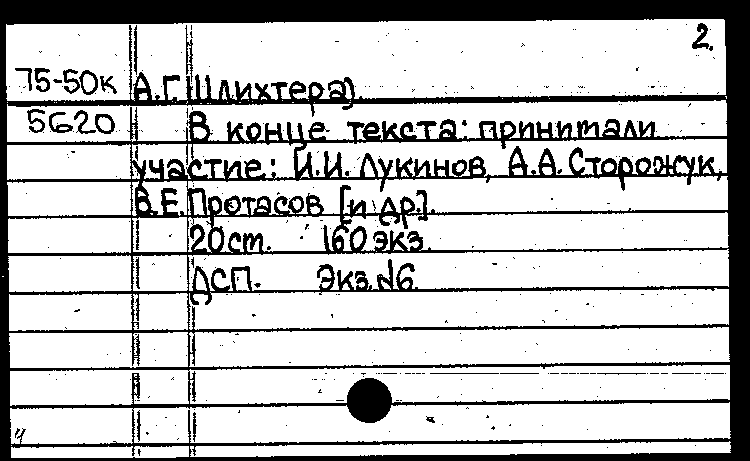 2.
75-50к А.Г. Шлихтера).
5620 В конце текста: принимали
участие: И.И. Лукинов, А.А. Сторожук,
В.Е. Протасов [и др.].
20 ст. 160 экз.
ДСП. Экз. №6